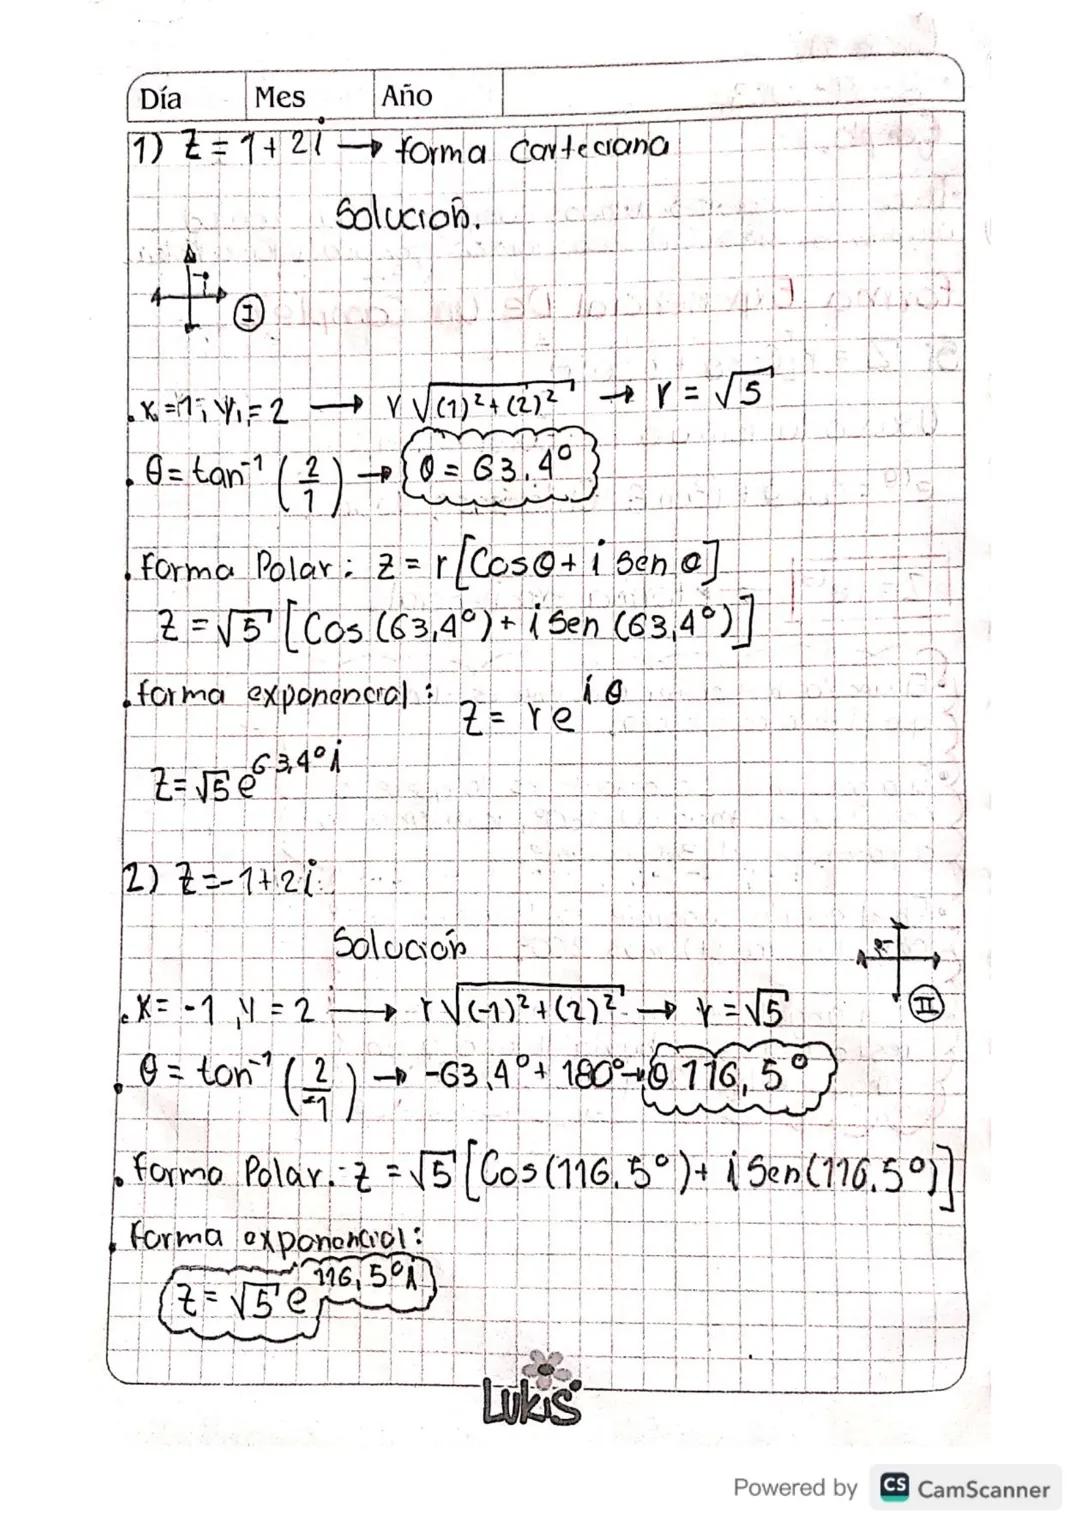 Día Mes Año
1) Z = 1 + 2i → forma Carteciana
Solución.
I
x = 1; y = 2 → r √(1)² + (2)² → r = √5
θ = tan⁻¹ (2/1) → θ = 63.4°
forma Polar: z = r [Cos θ + i Sen θ]
Z = √5 [Cos (63,4°) + i Sen (63,4°)]
forma exponencial: Z = r e^iθ
Z = √5 e^63,4°i
2) Z = -1 + 2i
Solución
x = -1, y = 2 → r √(-1)² + (2)² → r = √5
II
θ = tan⁻¹ (2/-1) → -63,4° + 180° → θ 116,5°
forma Polar: z = √5 [Cos (116.5°) + i Sen (116.5°)]
forma exponencial:
z = √5 e^116,5°i
LUKIS
Powered by CS CamScanner